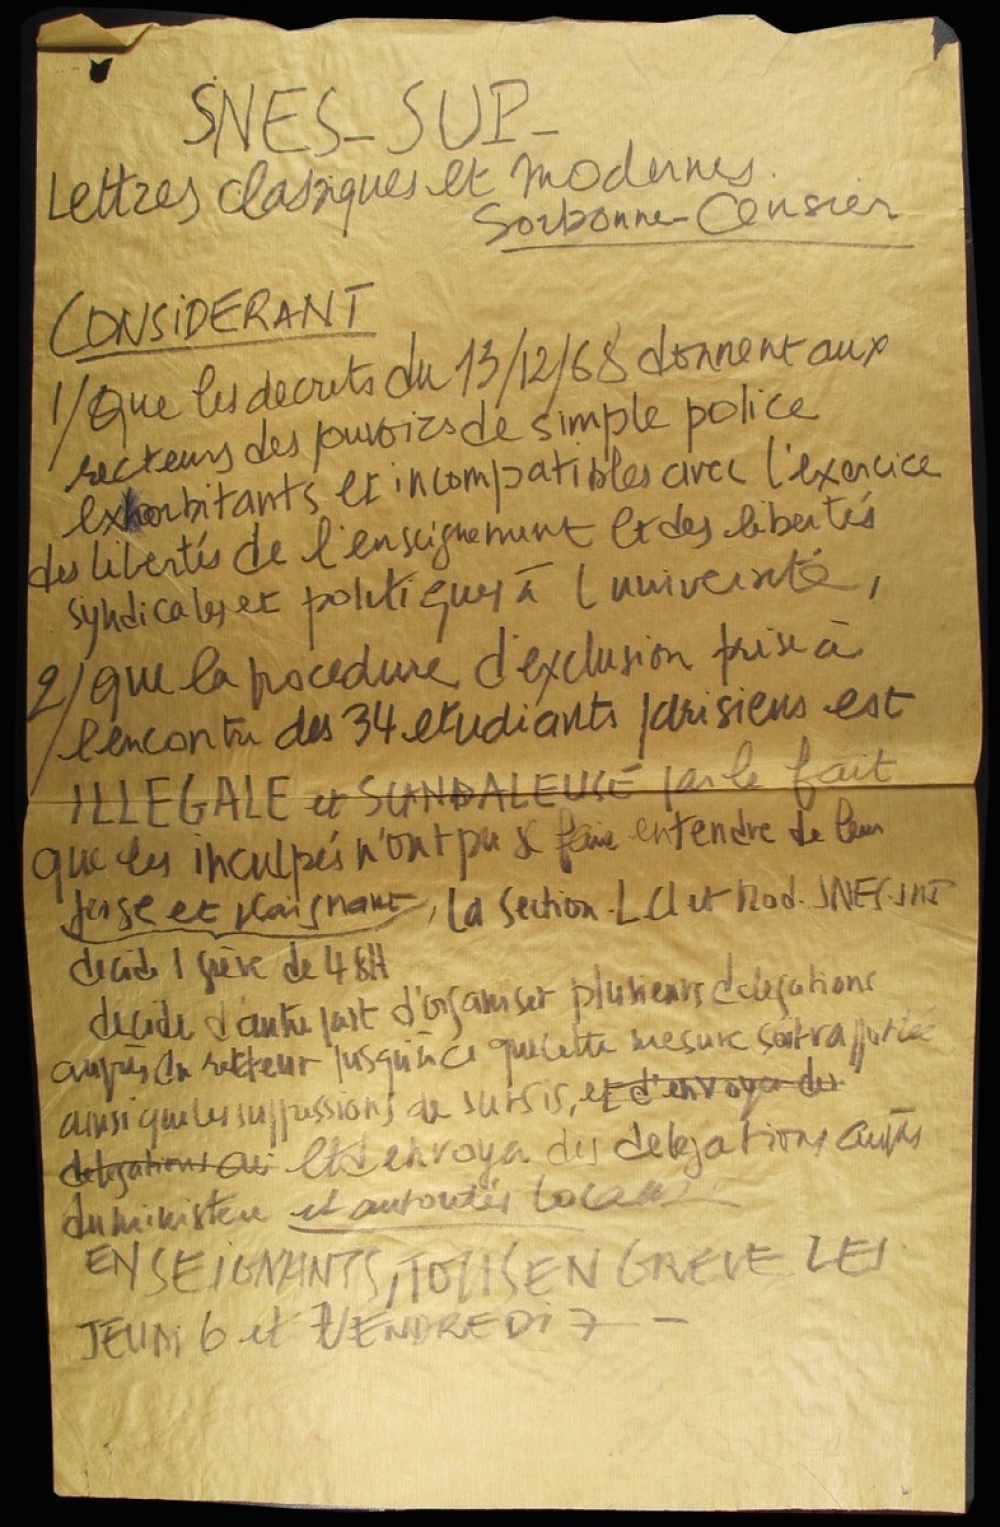 SNES-SUP-
Lettres classiques et modernes.
Sorbonne-Censier
CONSIDERANT
1/ Que les decrets du 13/12/68 donnent aux
recteurs des pouvoirs de simple police
exhorbitants et incompatibles avec l'exercice
des libertés de l'enseignement et des libertés
syndicales et politiques à l'université,
2/ que la procedure d'exclusion prise à
l'encontre des 34 etudiants parisiens est
ILLEGALE et SCANDALEUSE par le fait
que les inculpés n'ont pu se faire entendre de leur
juge et plaignant, la section L Cl et Mod. SNES-SUP
decide 1 grève de 48H
decide d'autre part d'organiser plusieurs delegations
auprès du recteur jusqu'à ce que cette mesure soit rapportée
ainsi que les suppressions de sursis, et d'envoyer des
delegations au et d'envoyer des delegations auprès
du ministère et autorités locales
ENSEIGNANTS, TOUS EN GREVE LES
JEUDI 6 et VENDREDI 7 -